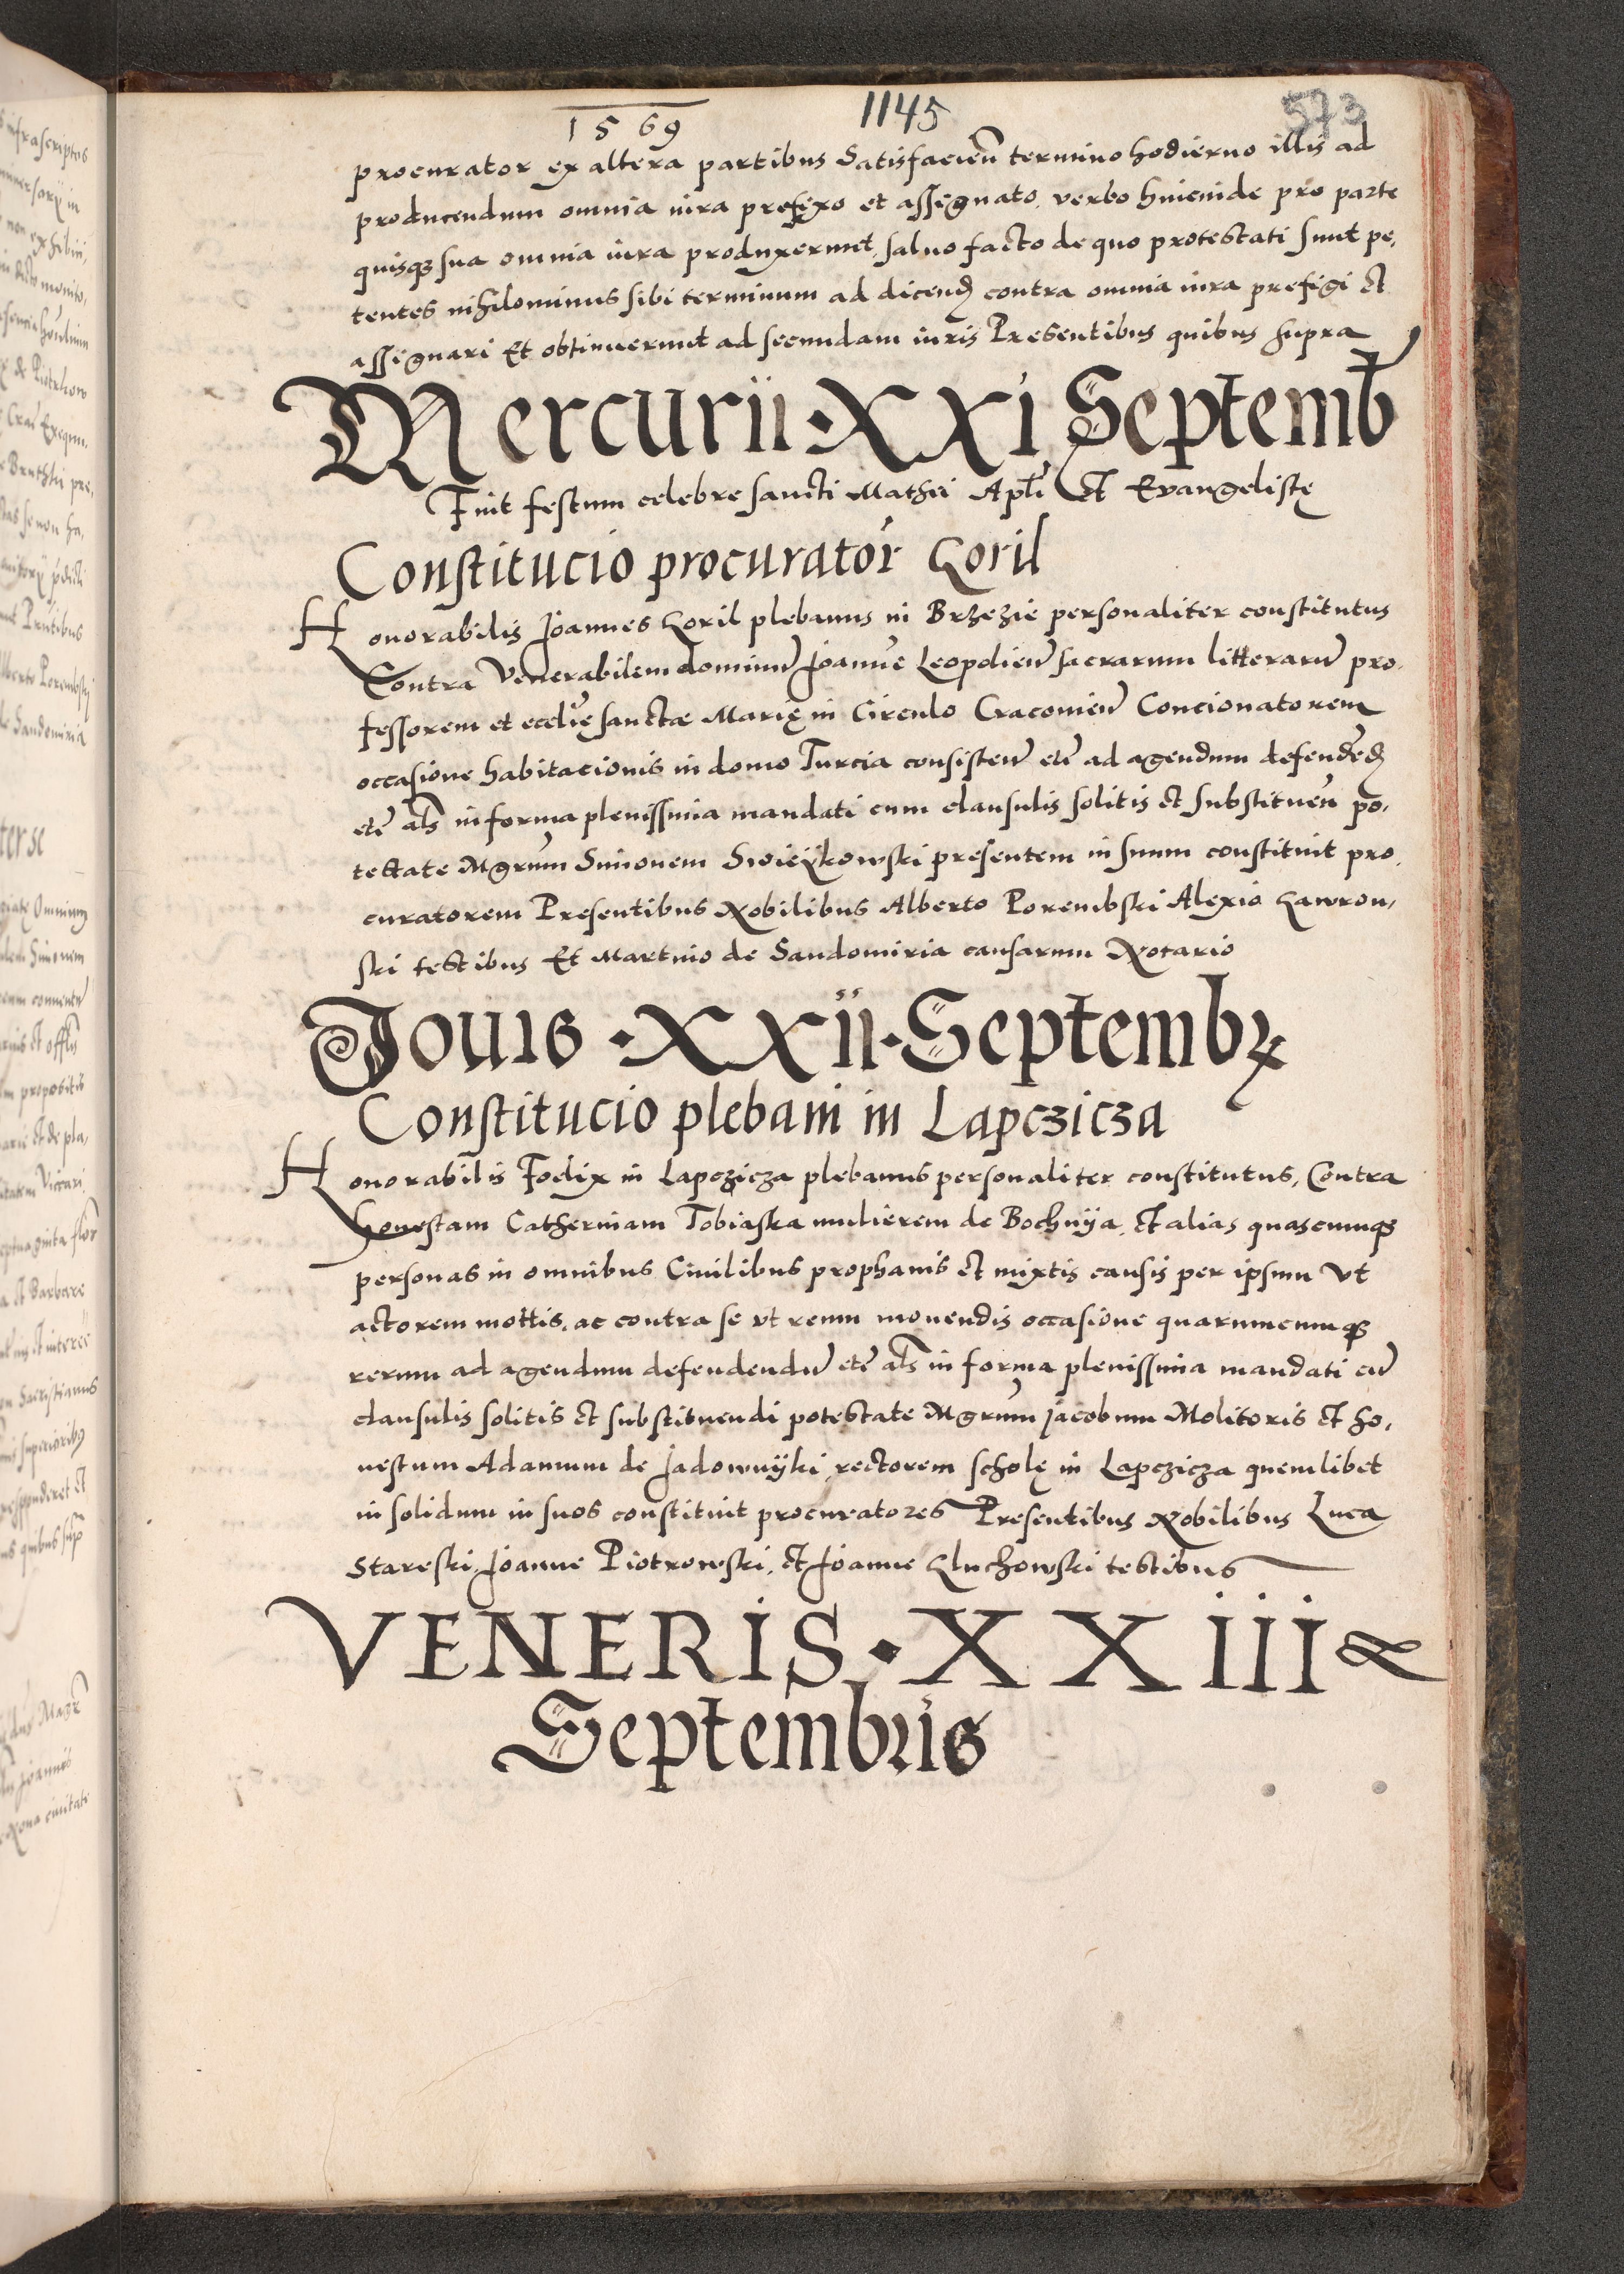 1569 1145 573
procurator ex altera partibus Satisfacieñ termino hodierno illis ad
producendum omnia iura prefixo et assignato, verbo hincinde pro parte
quisq3 sua omnia iura produxerunt, salvo facto de quo protestati sunt pe,
tentes nihilominus sibi terminum ad dicend contra omnia iura prefigi et
assignari Et obtinuerunt ad secundam iuris Presentibus quibus supra
Mercurii · XXI Septemb
Fuit festum celebre sancti Mathei Apłi Et Evangelistę
Constitucio procurator Goril
Honorabilis Joannes Goril plebanus in Brzezie personaliter constitutus
Contra Venerabilem dominũ Joannẽ Leopolieñ sacrarum litterarũ pro,
fessorem et ecclie sanctae Marię in Circulo Cracovieñ Concionatorem
occasione habitacionis in domo Turcia consisteñ etc ad agendum defendend
etc als in forma plenissima mandati cum clausulis solitis et substitueñ po,
testate Mgrum Simonem Swieykowski presentem in suum constituit pro,
curatorem Presentibus Nobilibus Alberto Porembski Alexio Gawron,
ski testibus Et Martino de Sandomiria causarum Notario
Jouis · XXII · Septembr
Constitucio plebani in Lapczicza
Honorabilis Foelix in Lapczicza plebanus personaliter constitutus, Contra
honestam Catherinam Tobiaska mulierem de Bochnya, et alias quascumq3
personas in omnibus Civilibus prophanis et mixtis causis per ipsum vt
actorem mottis, ac contra se vt reum movendis occasione quarumcumq3
rerum ad agendum defendendũ etc als in forma plenissima mandati cũ
clausulis solitis et substituendi potestate Mgrum Jacobum Molitoris et ho,
nestum Adamum de Jadownyki rectorem scholę in Lapczicza quemlibet
in solidum in suos constituit procuratores Presentibus Nobilibus Luca
Stareski, Joanne Piotrowski, et Joanne Gluchowski testibus
VENERIS · XXIII
Septembris